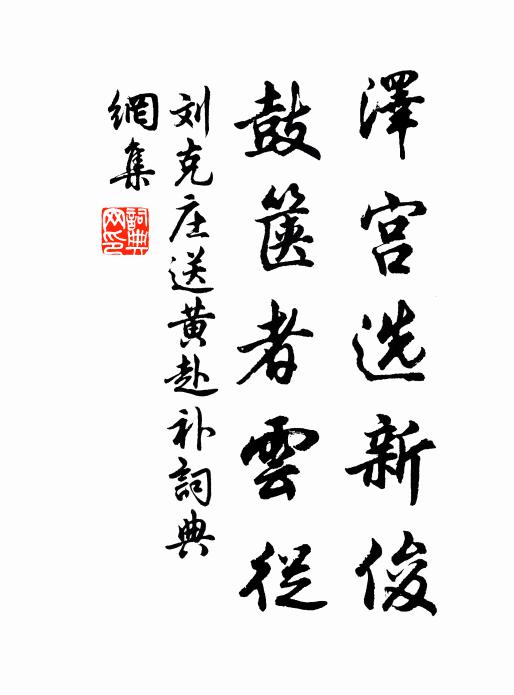 澤宫选新俊
鼓箧者雲從
刘克庄送黄赴补詞典
網集
詞典网印